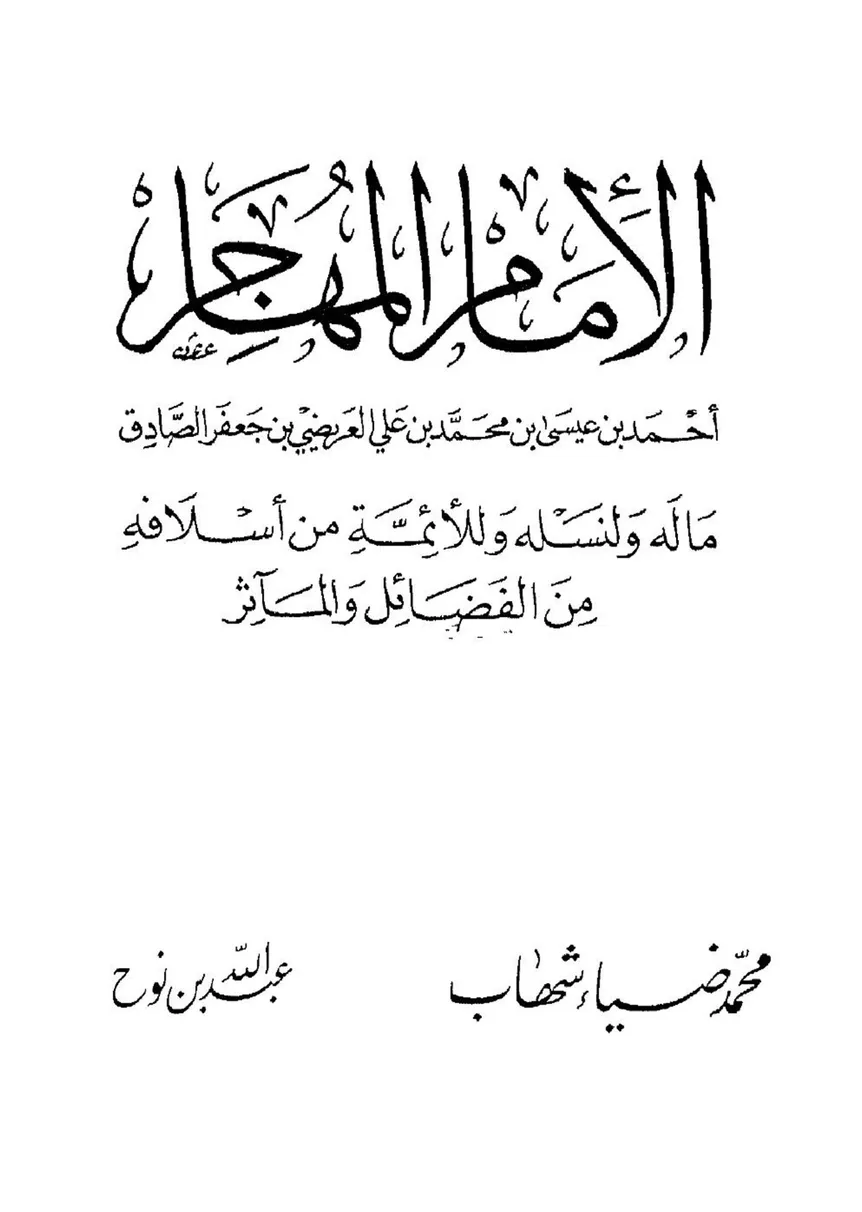 الإِمَامُ المُهَاجِر
أحْمَد بن عيسَى بن محمَّد بن عَلي العريضي بن جَعفَر الصَّادِق
مَا لَه وَلنَسْله وَللأئِمَّةِ من أسْلَافهِ
مِنَ الفَضَائل وَالمَآثِر
محمّد ضياء شهاب
عبد اللّه بن نوح